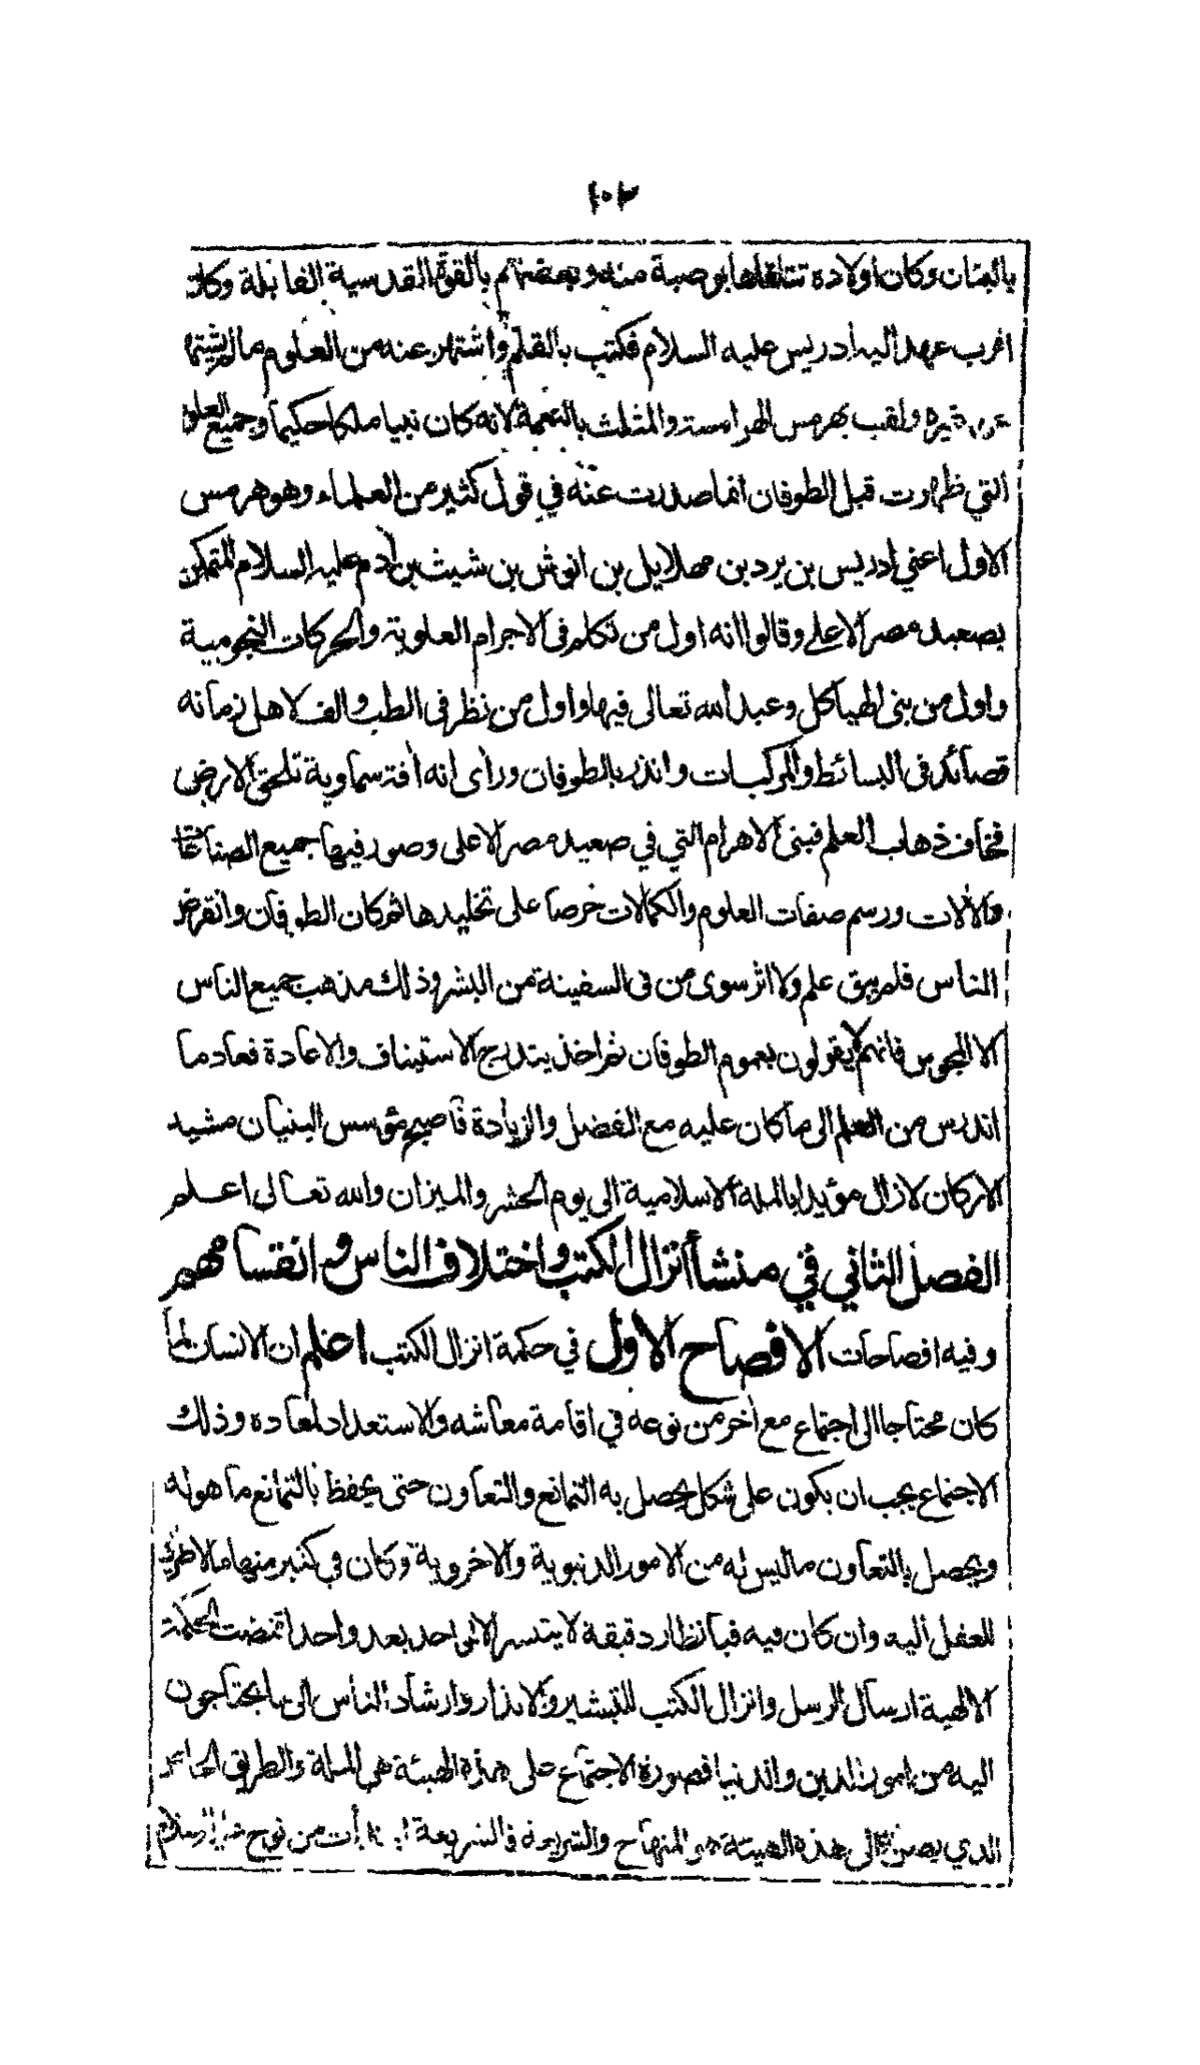 ١٠٢
وكان اولاده تتلقاها بوصية منه وبعضهم بالقوة القدسية القابلة وكان
اقرب عهد اليه ادريس عليه السلام فكتب بالقلم واشتهر عنه من العلوم ما لم يشتهر
عن غيره ولقب بهرمس الهرامسة والمثلث بالنعمة لانه كان نبيا ملكا حكيما وجميع العلوم
التي ظهرت قبل الطوفان انما صدرت عنه في قول كثير من العلماء وهو هرمس
الاول اعني ادريس بن يرد بن مهلايل بن انوش بن شيث بن آدم عليه السلام المتمكن
بصعيد مصر الاعلى وقالوا انه اول من تكلم فى الاجرام العلوية والحركات النجومية
واول من بنى الهياكل وعبد الله تعالى فيها واول من نظر فى الطب والف لاهل زمانه
قصائد فى البسائط والمركبات وانذر بالطوفان ورأى انه آفة سماوية تلحق الارض
فخاف ذهاب العلم فبنى الاهرام التي في صعيد مصر الاعلى وصور فيها جميع الصناعات
والآلات ورسم صفات العلوم والكمالات حرصا على تخليدها ثم كان الطوفان وانقرض
الناس فلم يبق علم ولا اثر سوى من فى السفينة من البشر وذلك مذهب جميع الناس
الا المجوس فانهم لا يقولون بعموم الطوفان ثم اخذ يتدرج الاستيناف والاعادة فعاد ما
اندرس من العلم الى ما كان عليه مع الفضل والزيادة فاصبح مؤسس البنيان مشيد
الاركان لا زال مؤيدا بالملة الاسلامية الى يوم الحشر والميزان والله تعالى اعلم
الفصل الثاني في منشأ انزال الكتب واختلاف الناس وانقسامهم
وفيه افصاحات الافصاح الاول في حكمة انزال الكتب اعلم ان الانسان لما
كان محتاجا الى اجتماع مع آخر من نوعه في اقامة معاشه والاستعداد لمعاده وذلك
الاجتماع يجب ان يكون على شكل يحصل به التمانع والتعاون حتى يحفظ بالتمانع ما هو له
ويحصل بالتعاون ما ليس له من الامور الدنيوية والاخروية وكان في كثير منها ما لا طريق
للعقل اليه وان كان فيه فبانظار دقيقة لا يتيسر الا لواحد بعد واحد اقتضت الحكمة
الالهية ارسال الرسل وانزال الكتب للتبشير والانذار وارشاد الناس الى ما يحتاجون
اليه من امور الدين والدنيا فصورة الاجتماع على هذه الهيئة هي الملة والطريق الخاص
الذي يصل الى هذه الهيئة هو المنهاج والشرعة فالشريعة من نوح عليه السلام